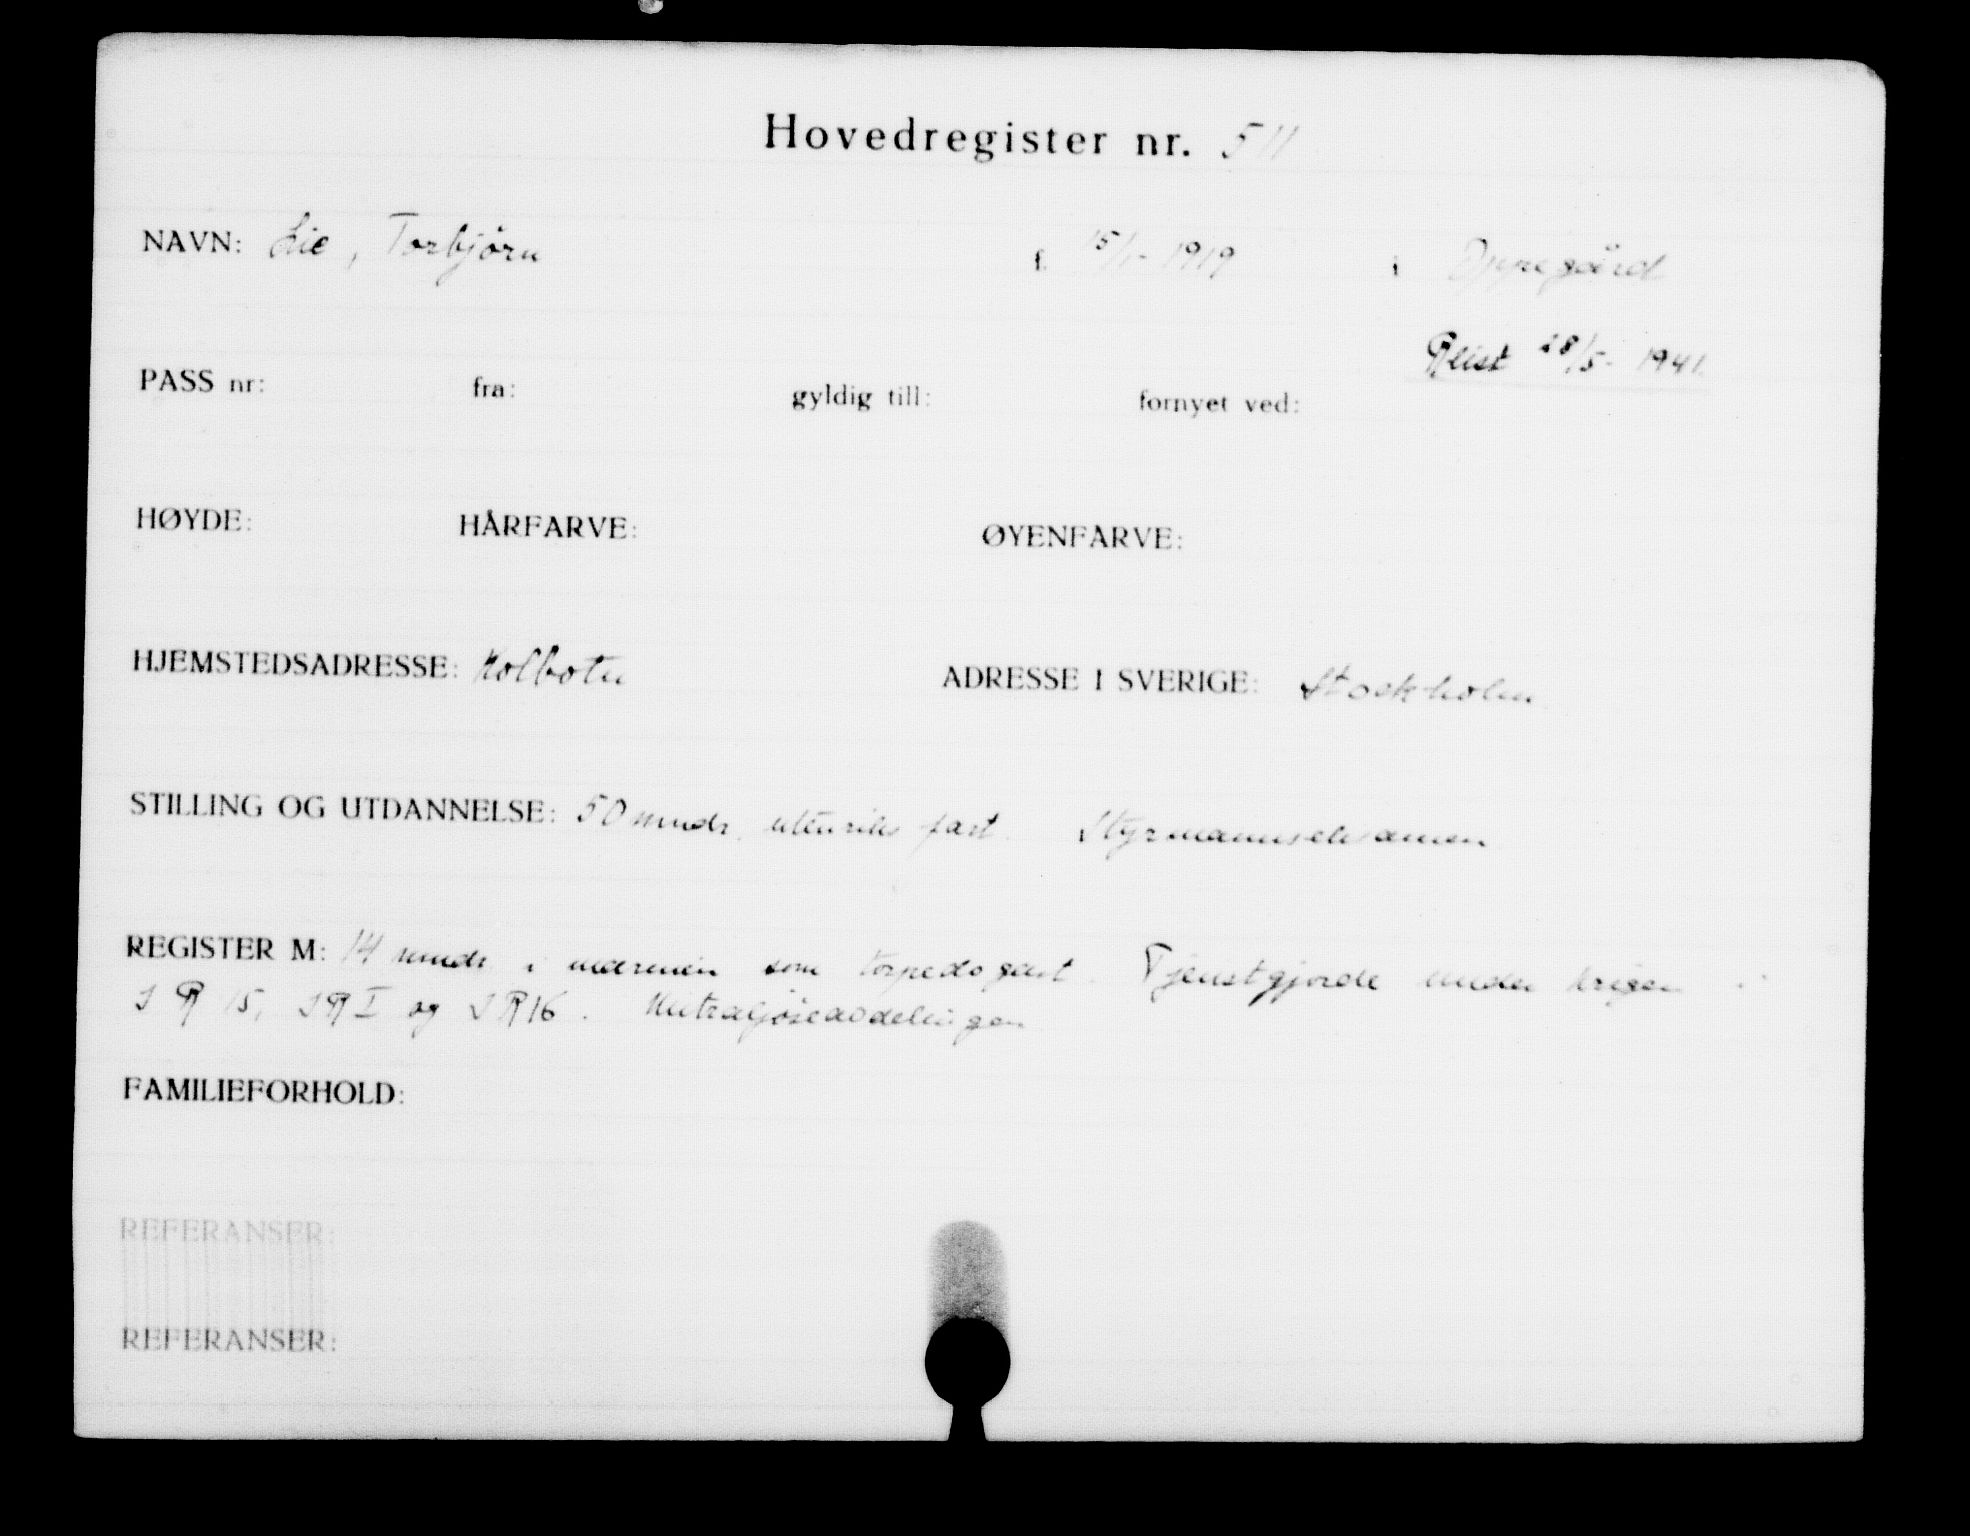 Hovedregister nr. 511
NAVN: Lie, Torbjörn f. 15/1-1919 i Oppegård
Reist 28/5-1941.
PASS nr: fra: gyldig till: fornyet ved:
HØYDE: HÅRFARVE: ØYENFARVE:
HJEMSTEDSADRESSE: Kolbotn ADRESSE I SVERIGE: Stockholm
STILLING OG UTDANNELSE: 50 mndr. utenriks fart. Styrmannseksamen
REGISTER M: 14 mndr. i marinen som torpedogast. Tjenstgjorde under krigen i
I R 15, I R I og I R 16. Mitraljöseavdelingen
FAMILIEFORHOLD:
REFERANSER:
REFERANSER: